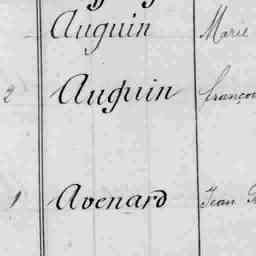 Auguin Marie
2 Auguin françoi
1 Avenard Jean